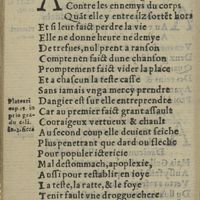 A Contre les ennemys du corps
Quãt elle y entre ilz sortẽt hors
Et si leur faict perdre la vie
Elle ne donne heure ne demye
De trefues, nul prent a ranson
Comptenẽn faict dune chanson
Promptement faict vider la place
Et a chascun la teste casse
Sans iamais vng a mercy prendre
Dangier est sur elle entreprendre
Car au premier faict grant assault
Couraigeux vertueux & chault
Au second coup elle deuient seiche
Plus penetrant que dard ou fleche
Pour populer istericie
Mal destommach, apoplexie,
Aussi pour restablir en ioye
La teste, la ratte, & le foye
Tenir fault vne drogue chere